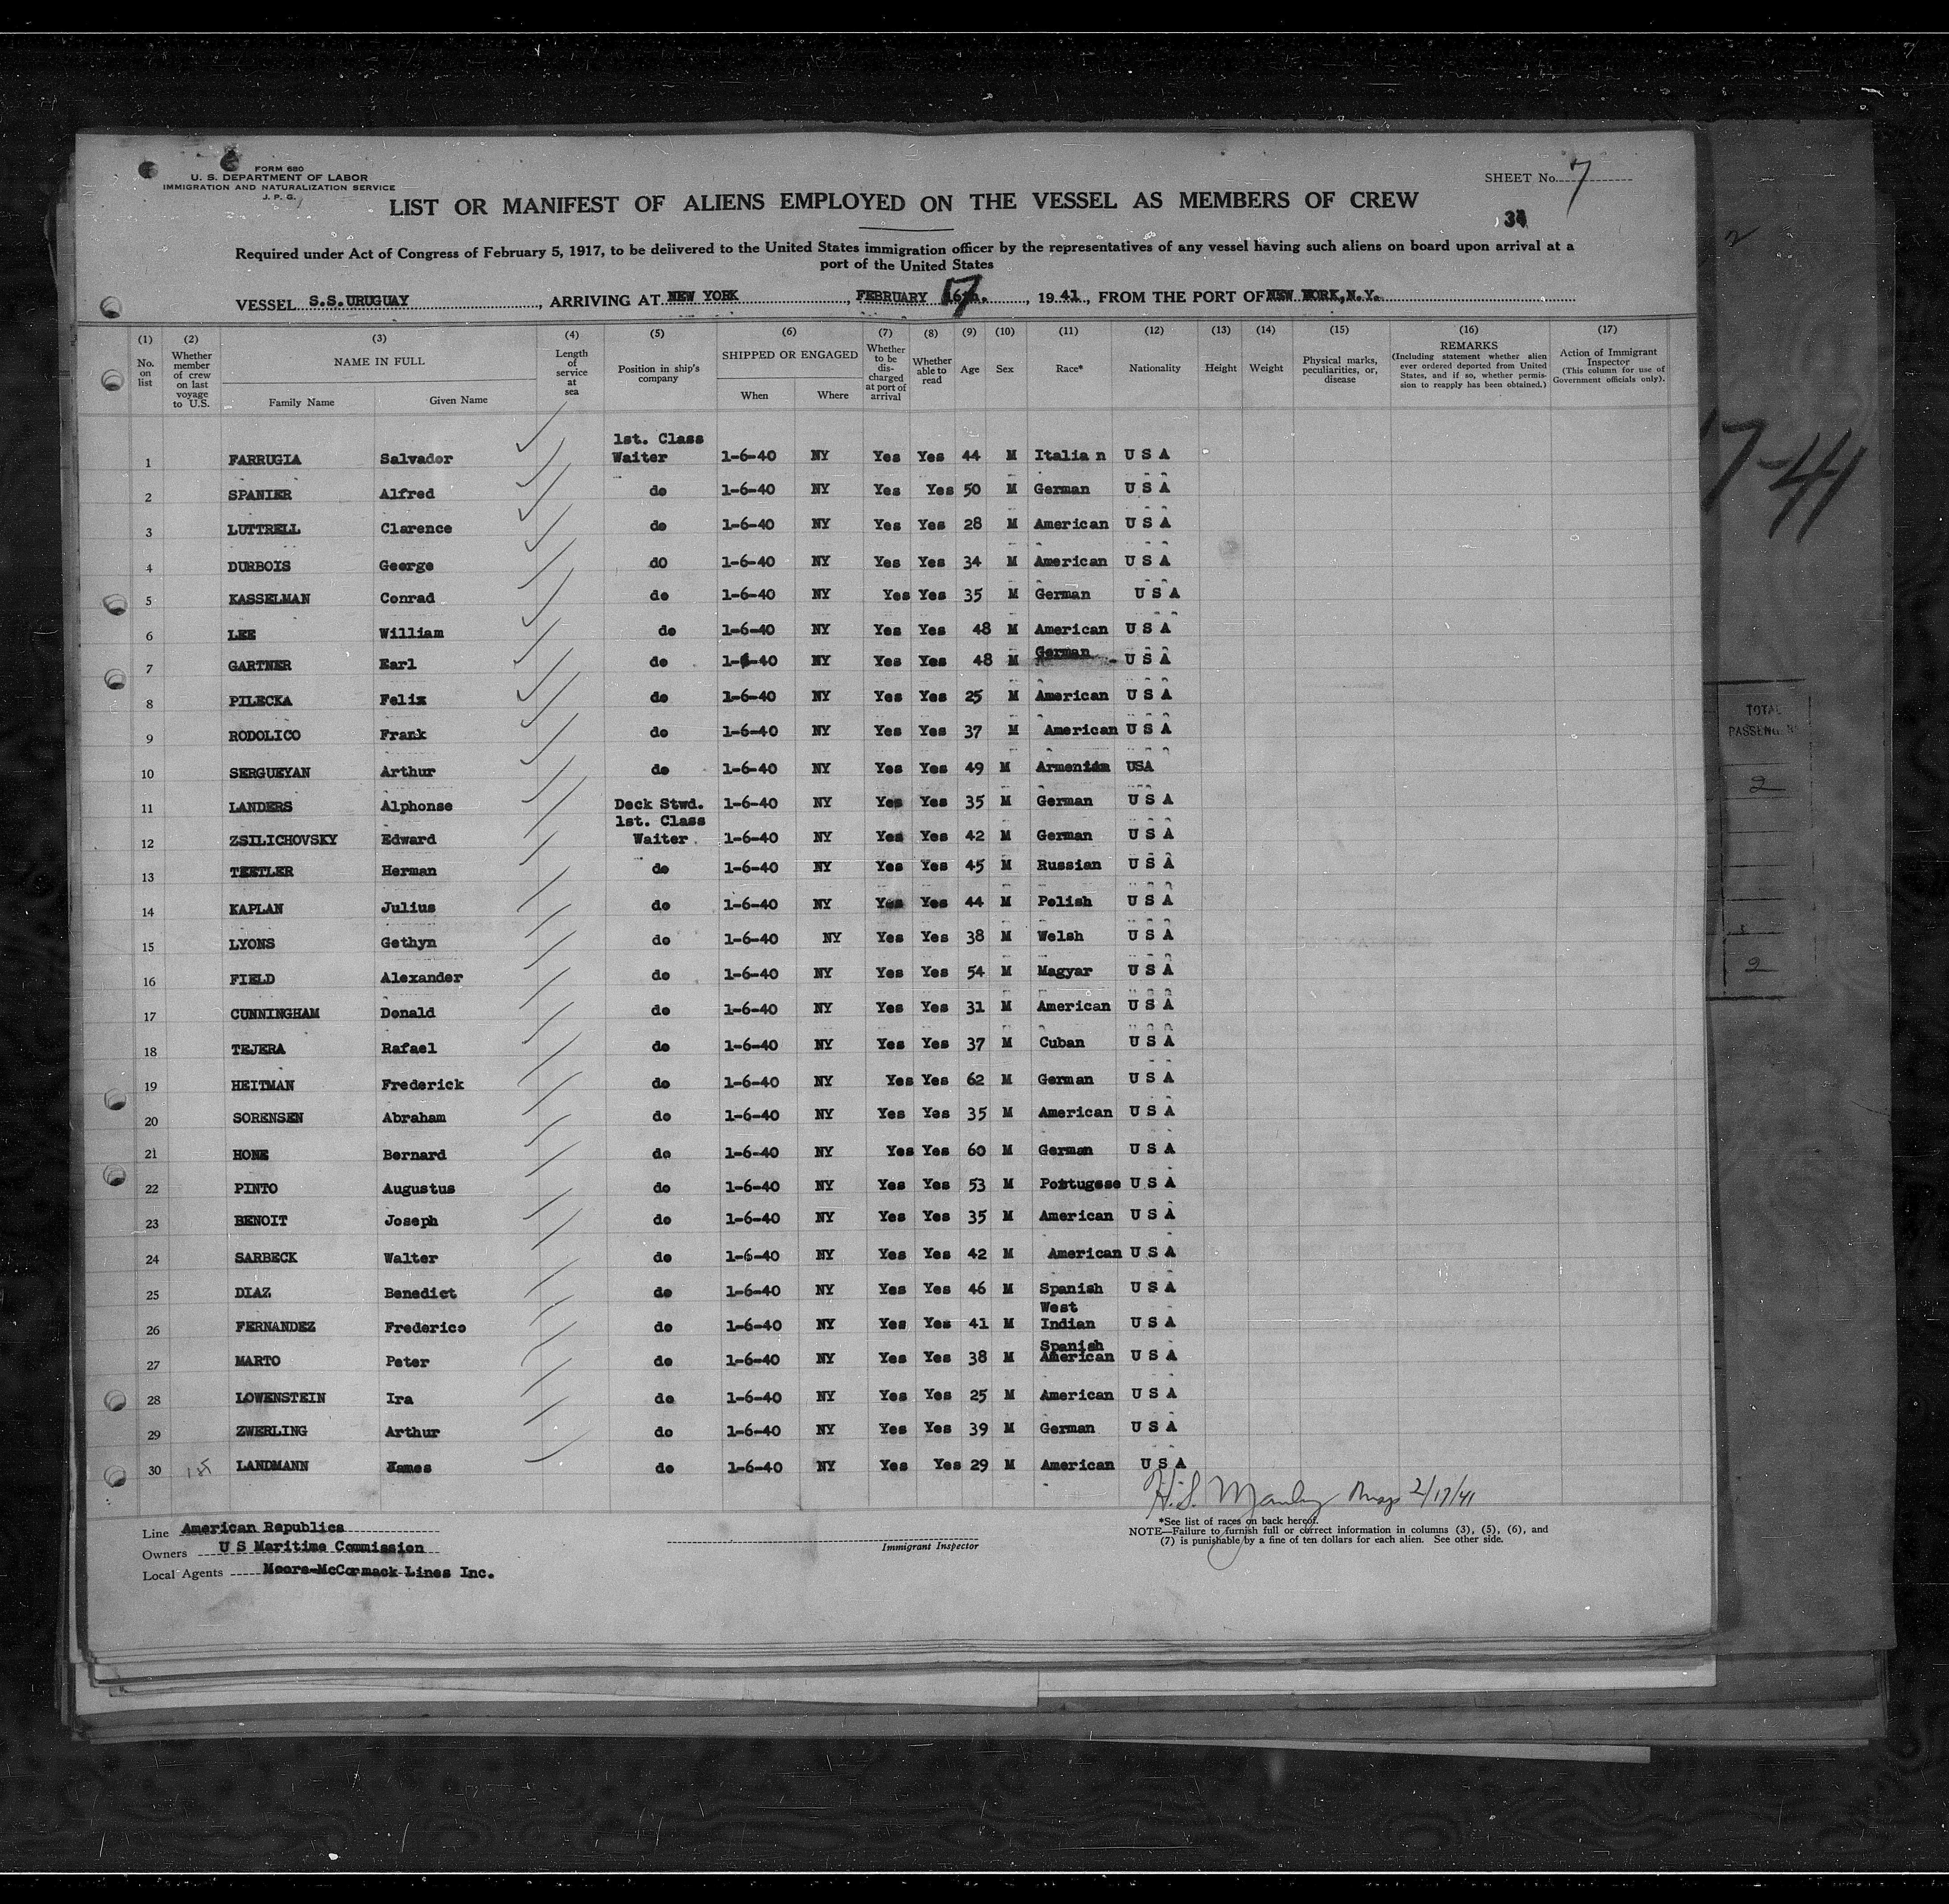 FORM 680
U. S. DEPARTMENT OF LABOR
IMMIGRATION AND NATURALIZATION SERVICE
J. P. G.
SHEET No. 7
LIST OR MANIFEST OF ALIENS EMPLOYED ON THE VESSEL AS MEMBERS OF CREW
34
Required under Act of Congress of February 5, 1917, to be delivered to the United States immigration officer by the representatives of any vessel having such aliens on board upon arrival at a
port of the United States
VESSEL S.S.URUGUAY, ARRIVING AT NEW YORK, FEBRUARY 17, 1941, FROM THE PORT OF NEW YORK,N.Y.
(1) No. on list
(2) Whether member of crew on last voyage to U.S.
(3) NAME IN FULL Family Name Given Name
(4) Length of service at sea
(5) Position in ship's company
(6) SHIPPED OR ENGAGED When Where
(7) Whether to be discharged at port of arrival
(8) Whether able to read
(9) Age
(10) Sex
(11) Race*
(12) Nationality
(13) Height
(14) Weight
(15) Physical marks, peculiarities, or, disease
(16) REMARKS (Including statement whether alien ever ordered deported from United States, and if so, whether permission to reapply has been obtained.)
(17) Action of Immigrant Inspector (This column for use of Government officials only).
1 FARRUGIA Salvador 1st. Class Waiter 1-6-40 NY Yes Yes 44 M Italia n U S A
2 SPANIER Alfred do 1-6-40 NY Yes Yes 50 M German U S A
3 LUTTRELL Clarence do 1-6-40 NY Yes Yes 28 M American U S A
4 DURBOIS George dO 1-6-40 NY Yes Yes 34 M American U S A
5 KASSELMAN Conrad do 1-6-40 NY Yes Yes 35 M German U S A
6 LEE William do 1-6-40 NY Yes Yes 48 M American U S A
7 GARTNER Earl do 1-6-40 NY Yes Yes 48 M German U S A
8 PILECKA Felix do 1-6-40 NY Yes Yes 25 M American U S A
9 RODOLICO Frank do 1-6-40 NY Yes Yes 37 M American U S A
10 SERGUEYAN Arthur do 1-6-40 NY Yes Yes 49 M Armenian USA
11 LANDERS Alphonse Deck Stwd. 1-6-40 NY Yes Yes 35 M German U S A
12 ZSILICHOVSKY Edward 1st. Class Waiter 1-6-40 NY Yes Yes 42 M German U S A
13 TEETLER Herman do 1-6-40 NY Yes Yes 45 M Russian U S A
14 KAPLAN Julius do 1-6-40 NY Yes Yes 44 M Polish U S A
15 LYONS Gethyn do 1-6-40 NY Yes Yes 38 M Welsh U S A
16 FIELD Alexander do 1-6-40 NY Yes Yes 54 M Magyar U S A
17 CUNNINGHAM Donald do 1-6-40 NY Yes Yes 31 M American U S A
18 TEJERA Rafael do 1-6-40 NY Yes Yes 37 M Cuban U S A
19 HEITMAN Frederick do 1-6-40 NY Yes Yes 62 M German U S A
20 SORENSEN Abraham do 1-6-40 NY Yes Yes 35 M American U S A
21 HONE Bernard do 1-6-40 NY Yes Yes 60 M German U S A
22 PINTO Augustus do 1-6-40 NY Yes Yes 53 M Portugese U S A
23 BENOIT Joseph do 1-6-40 NY Yes Yes 35 M American U S A
24 SARBECK Walter do 1-6-40 NY Yes Yes 42 M American U S A
25 DIAZ Benedict do 1-6-40 NY Yes Yes 46 M Spanish U S A
26 FERNANDEZ Frederico do 1-6-40 NY Yes Yes 41 M West Indian U S A
27 MARTO Peter do 1-6-40 NY Yes Yes 38 M Spanish American U S A
28 LOWENSTEIN Ira do 1-6-40 NY Yes Yes 25 M American U S A
29 ZWERLING Arthur do 1-6-40 NY Yes Yes 39 M German U S A
30 LANDMANN James do 1-6-40 NY Yes Yes 29 M American U S A
H. S. 2/17/41
Line American Republics
Owners U S Maritime Commission
Local Agents Moore-McCormack Lines Inc.
Immigrant Inspector
*See list of races on back hereof.
NOTE—Failure to furnish full or correct information in columns (3), (5), (6), and
(7) is punishable by a fine of ten dollars for each alien. See other side.
2
7-41
TOTAL
2
2